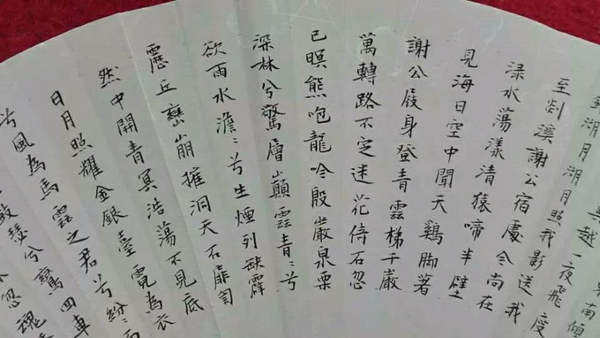 東南傾
越一夜飛度
湖月湖月照我影送我
至剡溪謝公宿處今尚在
淥水蕩漾清猿啼半壁
見海日空中聞天鷄脚著
謝公屐身登青雲梯千巖
萬轉路不定迷花倚石忽
已暝熊咆龍吟殷巖泉栗
深林兮驚層巔雲青〻兮
欲雨水澹〻兮生煙列缺霹
靂丘巒崩摧洞天石扉訇
然中開青冥浩蕩不見底
日月照耀金銀臺霓為衣
兮風為馬雲之君兮紛〻而
鼓瑟兮鸞回車
忽魂